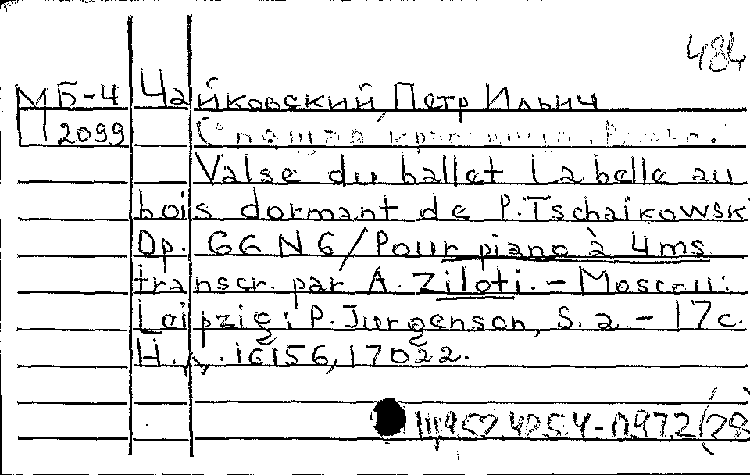 484
МБ-4 Чайковский, Петр Ильич
2099 Спящая красавица. Вальс.
Valse du ballet La belle au
bois dormant de P. Tschaikowsk
Op. 66 N 6/Pour piano à 4 ms
transcr. par A. Ziloti. - Moscou:
Leipzig: P. Jurgenson, S. a - 17 c.
Н. д. 16156, 17022.
Щ957.4